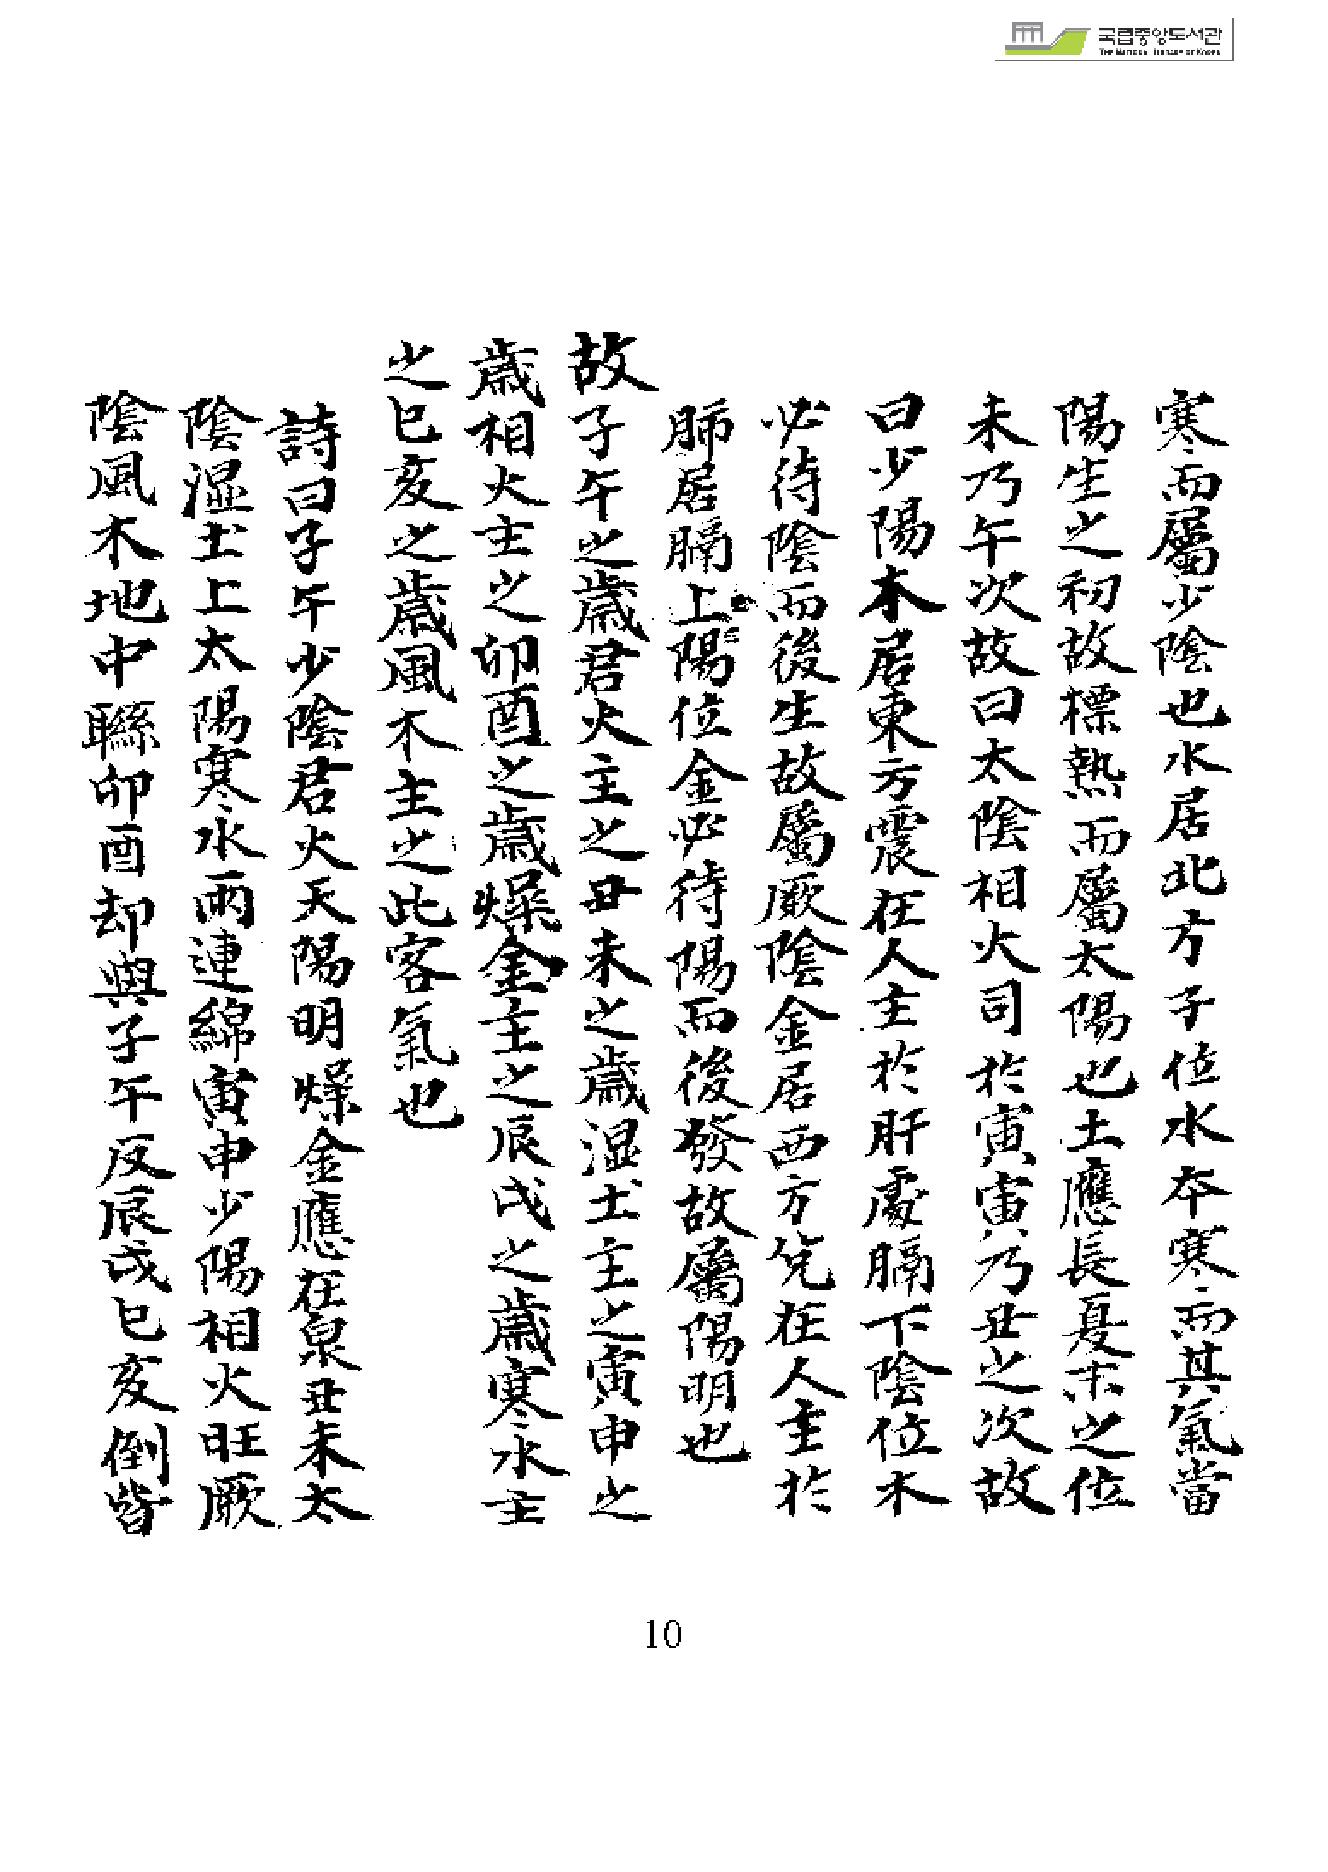 국립중앙도서관
The National Library of Korea
寒而屬少陰也水居北方子位水本寒而其氣當
陽生之初故標熱而屬太陽也土應長夏末之位
未乃午次故曰太陰相火司於寅寅乃丑之次故
曰少陽木居東方震在人主於肝處膈下陰位木
必待陰而後生故屬厥陰金居西方兌在人主於
肺居膈上陽位金必待陽而後發故屬陽明也
故子午之歲君火主之丑未之歲湿土主之寅申之
歲相火主之卯酉之歲燥金主之辰戌之歲寒水主
之巳亥之歲風木主之此客氣也
詩曰子午少陰君火天陽明燥金應在泉丑未太
陰湿土上太陽寒水雨連綿寅申少陽相火旺厥
陰風木地中聯卯酉却與子午反辰戌巳亥倒皆
10